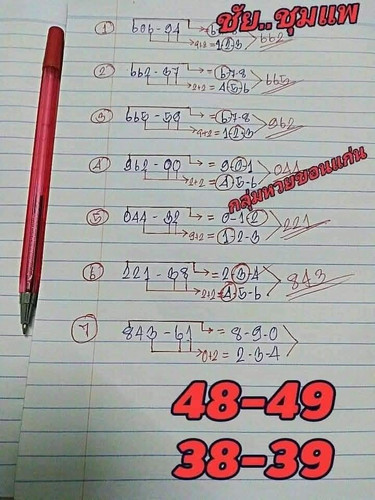 ชัย..ชุมแพ
① 606-94
9+2= 1-2-3 662
② 662-37 = 6-7-8
2+2= 4-5-6 665
③ 665-59 = 6-7-8
9+2= 1-2-3 962
④ 962-90 = 9-0-1 044
2+2= 4-5-6
กลุ่มหวยขอนแก่น
⑤ 044-32 = 0-1-2
9+2= 1-2-3 221
⑥ 221-68 = 2-3-4
2+2= 4-5-6 843
843-61 = 8-9-0
0+2= 2-3-4
48-49
38-39